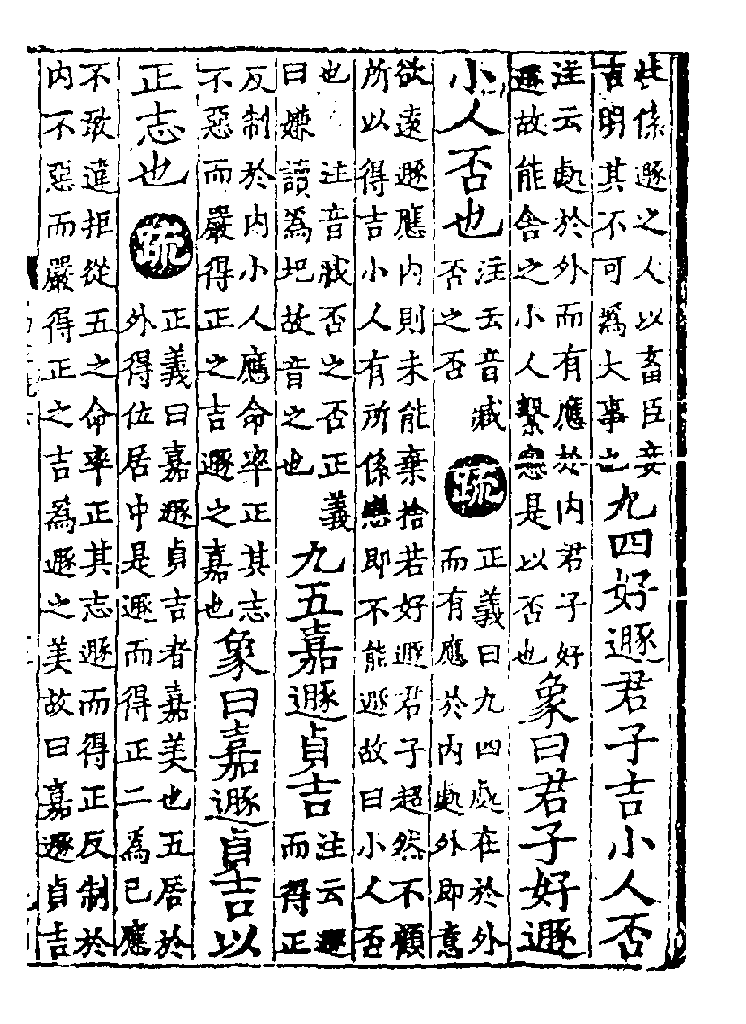 此係遯之人以畜臣妾吉明其不可為大事也九四好遯君子吉小人否
注云處於外而有應於内君子好遯故能舍之小人繫戀是以否也象曰君子好遯
小人否也注云音臧否之否疏正義曰九四處在於外而有應於内處外即意
欲遠遯應内則未能棄捨若好遯君子超然不顧所以得吉小人有所係戀即不能遯故曰小人否
也 注音臧否之否正義曰嫌讀為圯故音之也九五嘉遯貞吉注云遯而得正
反制於内小人應命率正其志不惡而嚴得正之吉遯之嘉也象曰嘉遯貞吉以
正志也疏正義曰嘉遯貞吉者嘉美也五居於外得位居中是遯而得正二為己應
不敢違拒從五之命率正其志遯而得正反制於内不惡而嚴得正之吉為遯之美故曰嘉遯貞吉